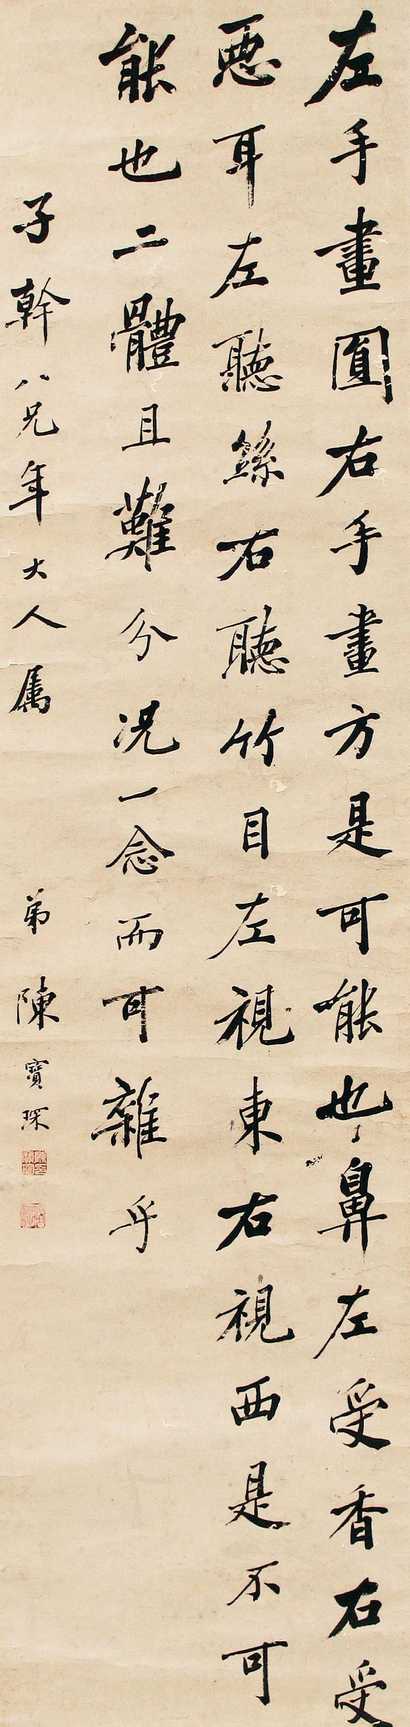 左手畫圓右手畫方是可能也鼻左受香右受
惡耳左聽絲右聽竹目左視東右視西是不可
能也二體且難分况一念而可雜乎
子幹八兄年大人属
弟陳寶琛